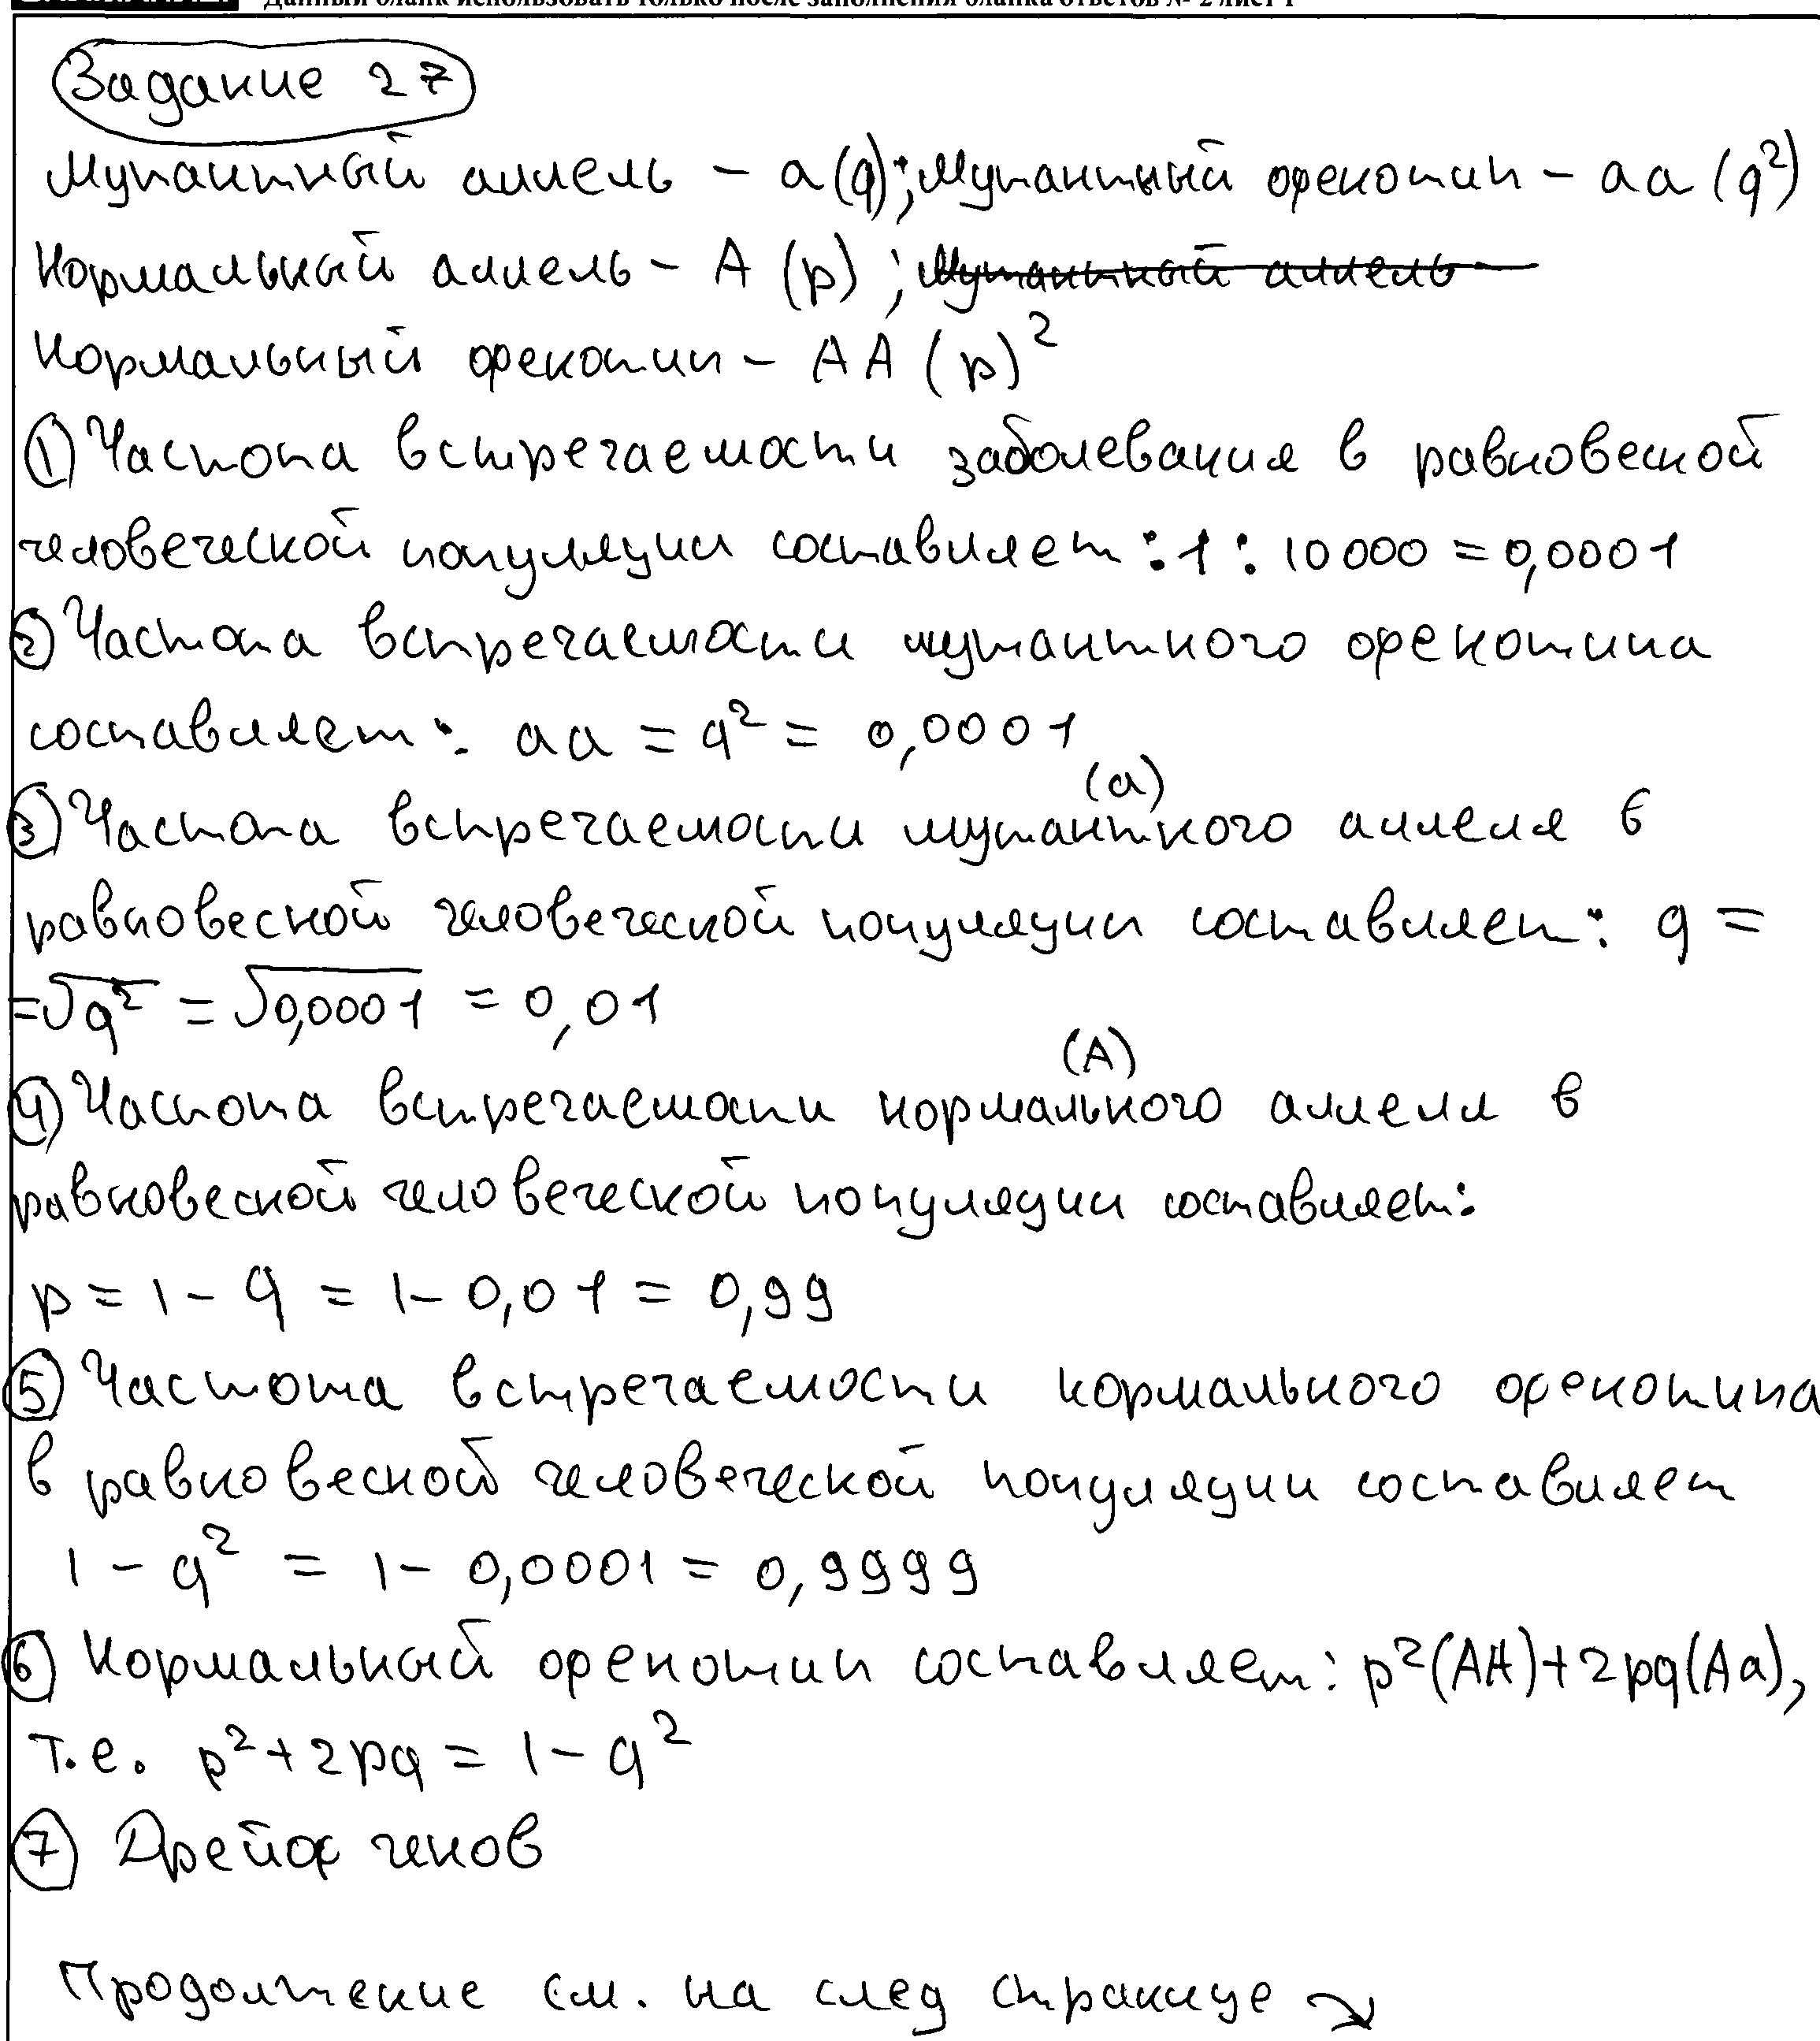 Данный бланк использовать только после заполнения бланка ответов № 2 лист 1
Задание 27
Мутантный аллель – a(q); Мутантный фенотип – aa (q²)
Нормальный аллель – A (p); Мутантный аллель –
Нормальный фенотип – AA (p)²
① Частота встречаемости заболевания в равновесной
человеческой популяции составляет: 1 : 10 000 = 0,0001
② Частота встречаемости мутантного фенотипа
составляет: aa = q² = 0,0001
(a)
③ Частота встречаемости мутантного аллеля в
равновесной человеческой популяции составляет: q =
= √q² = √0,0001 = 0,01
(A)
④ Частота встречаемости нормального аллеля в
равновесной человеческой популяции составляет:
p = 1 – q = 1 – 0,01 = 0,99
⑤ Частота встречаемости нормального фенотипа
в равновесной человеческой популяции составляет
1 – q² = 1 – 0,0001 = 0,9999
⑥ Нормальный фенотип составляет: p²(AA)+2pq(Aa),
т.е. p²+2pq = 1 – q²
⑦ Дрейф генов
Продолжение см. на след странице ↘